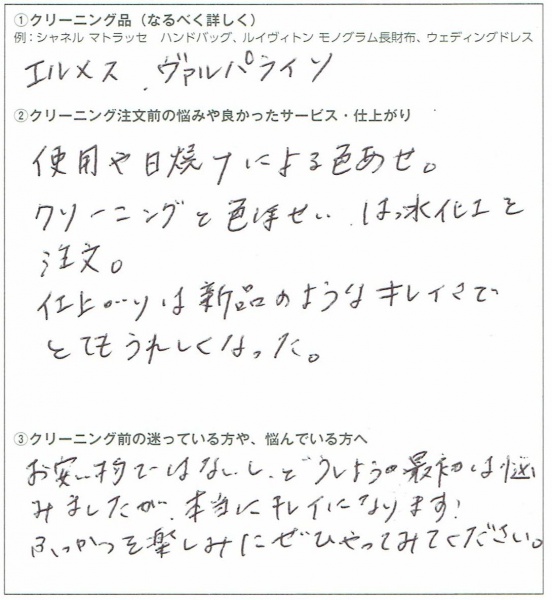 ①クリーニング品（なるべく詳しく）
例：シャネル マトラッセ　ハンドバッグ、ルイヴィトン モノグラム長財布、ウェディングドレス
エルメス、ヴァルパライソ
②クリーニング注文前の悩みや良かったサービス・仕上がり
使用や日焼けによる色あせ。
クリーニングと色修せい、はっ水化工を
注文。
仕上がりは新品のようなキレイさで
とてもうれしくなった。
③クリーニング前の迷っている方や、悩んでいる方へ
お安い物ではないし、どうしようか最初は悩
みましたが、本当にキレイになります！
ふっかつを楽しみにぜひやってみてください。